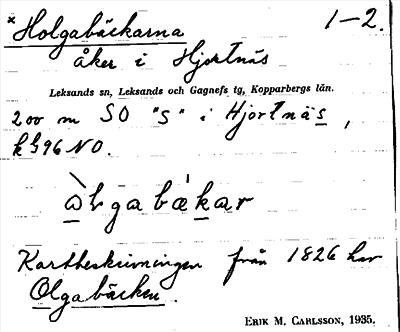 * Holgabäckarna 1-2.
åker i Hjortnäs
Leksands sn, Leksands och Gagnefs tg, Kopparbergs län.
200 m SO "S" i Hjortnäs,
96 NO.
àlgabækar
Kartbeskrivningen från 1826 har
Olgabäcken.
ERIK M. CARLSSON, 1935.